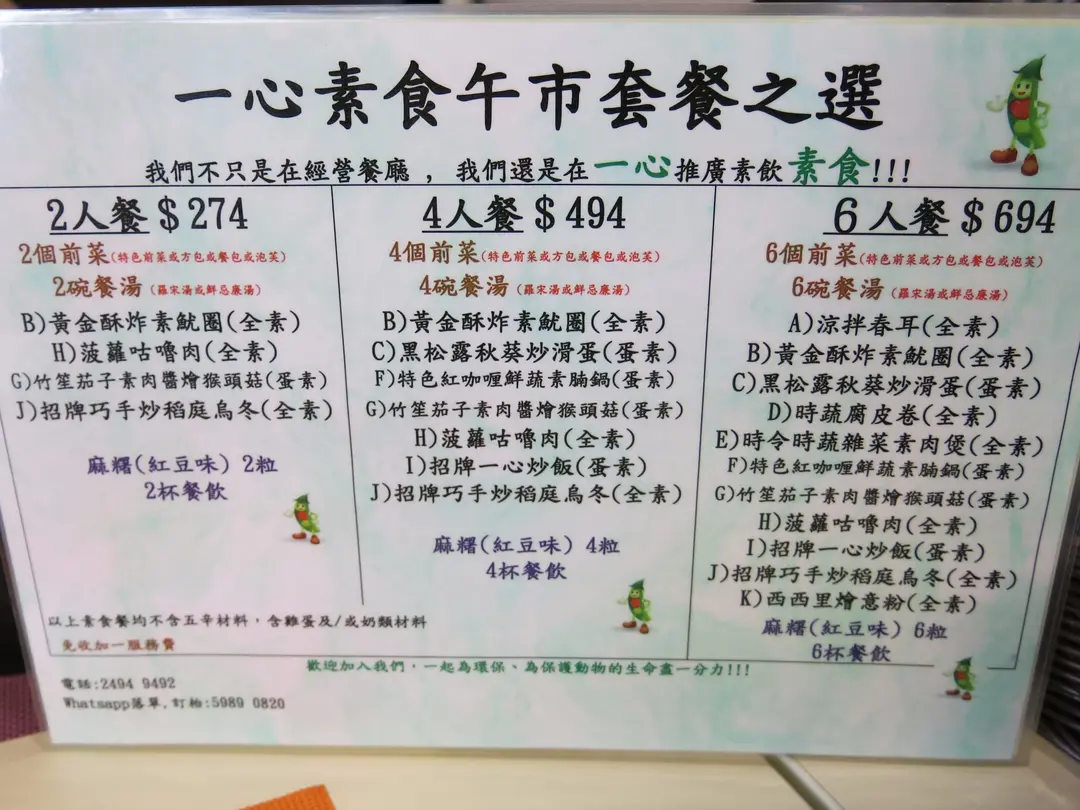 一心素食午市套餐之選
我們不只是在經營餐廳,我們還是在一心推廣素飲素食!!!
2人餐 $274
2個前菜(特色前菜或方包或餐包或泡芙)
2碗餐湯(羅宋湯或鮮忌廉湯)
B)黃金酥炸素魷圈(全素)
H)菠蘿咕嚕肉(全素)
G)竹笙茄子素肉醬燴猴頭菇(蛋素)
J)招牌巧手炒稻庭烏冬(全素)
麻糬(紅豆味) 2粒
2杯餐飲
4人餐 $494
4個前菜(特色前菜或方包或餐包或泡芙)
4碗餐湯(羅宋湯或鮮忌廉湯)
B)黃金酥炸素魷圈(全素)
C)黑松露秋葵炒滑蛋(蛋素)
F)特色紅咖喱鮮蔬素腩鍋(蛋素)
G)竹笙茄子素肉醬燴猴頭菇(蛋素)
H)菠蘿咕嚕肉(全素)
I)招牌一心炒飯(蛋素)
J)招牌巧手炒稻庭烏冬(全素)
麻糬(紅豆味) 4粒
4杯餐飲
6人餐 $694
6個前菜(特色前菜或方包或餐包或泡芙)
6碗餐湯(羅宋湯或鮮忌廉湯)
A)涼拌春耳(全素)
B)黃金酥炸素魷圈(全素)
C)黑松露秋葵炒滑蛋(蛋素)
D)時蔬腐皮卷(全素)
E)時令時蔬雜菜素肉煲(全素)
F)特色紅咖喱鮮蔬素腩鍋(蛋素)
G)竹笙茄子素肉醬燴猴頭菇(蛋素)
H)菠蘿咕嚕肉(全素)
I)招牌一心炒飯(蛋素)
J)招牌巧手炒稻庭烏冬(全素)
K)西西里燴意粉(全素)
麻糬(紅豆味) 6粒
6杯餐飲
以上素食餐均不含五辛材料,含雞蛋及/或奶類材料
免收加一服務費
歡迎加入我們,一起為環保、為保護動物的生命盡一分力!!!
電話:2494 9492
Whatsapp落單,訂枱:5989 0820